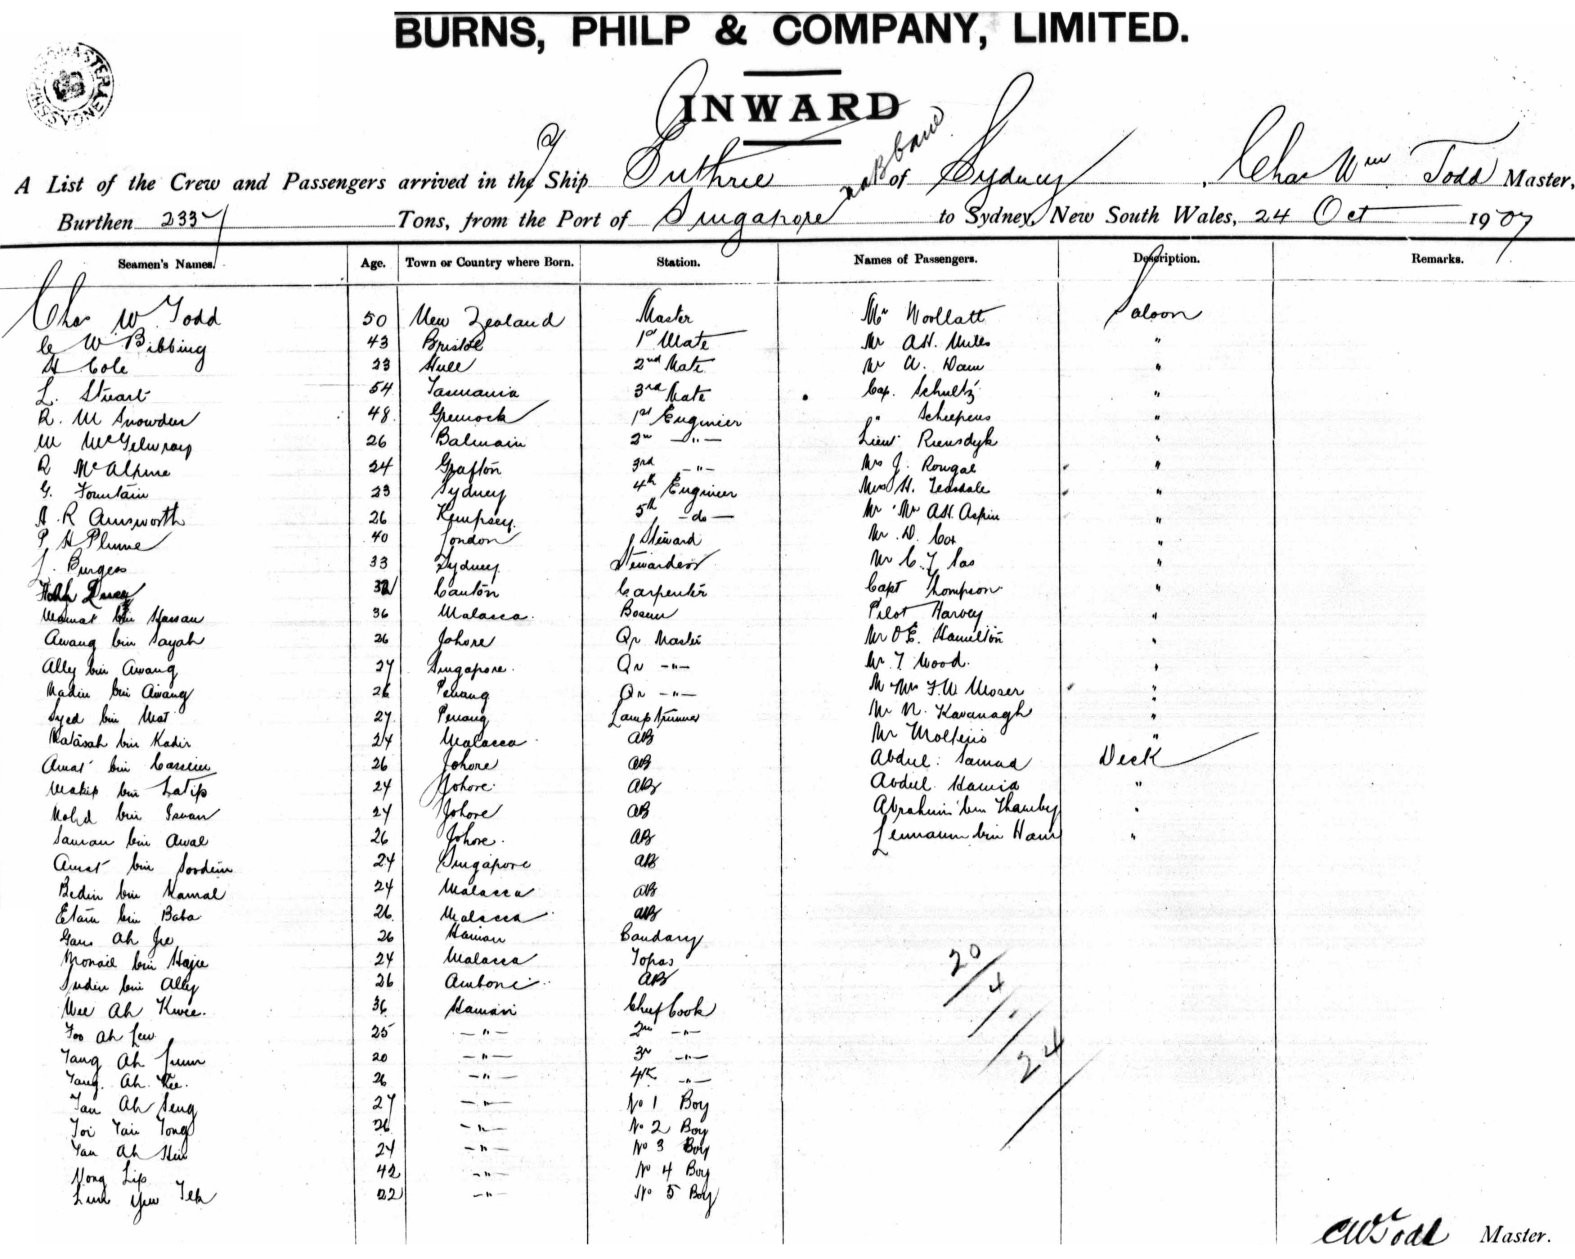 BURNS, PHILP & COMPANY, LIMITED.
INWARD
A List of the Crew and Passengers arrived in the Ship Guthrie via Bbane of Sydney, Chas Wm Todd Master,
Burthen 2337 Tons, from the Port of Singapore to Sydney, New South Wales, 24 Oct 1907
Seamen's Names. Age. Town or Country where Born. Station. Names of Passengers. Description. Remarks.
Chas W Todd 50 New Zealand Master Mr Woollatt Saloon
C W Bibbing 43 Bristol 1st Mate Mr AH. Miles "
H Cole 23 Hull 2nd Mate Mr A. Dam "
L. Stuart 54 Tasmania 3rd Mate Cap. Schultz "
R. M Snowden 48 Greenock 1st Engineer " Scheepens "
W McGilwray 26 Balmain 2nd -"- Lieut Riensdyk "
R McAlpine 24 Grafton 3rd -"- Mrs J. Rougal "
G. Fountain 23 Sydney 4th Engineer Miss H. Teasdale "
A. R Ainsworth 26 Kempsey. 5th -do- Mr Mrs AH. Aspin "
P H Plume 40 London Steward Mr D. Cox "
L. Burgess 33 Sydney Stewardess Mr C. J Sas "
32 Canton Carpenter Capt Thompson "
Mamat bin Hassan 36 Malacca. Bosun Pilot Harvey "
Awang bin Sayah 26 Johore Qr Master Mr O E. Hamilton "
Ally bin Awang 27 Singapore. Qr -"- Mr T Wood. "
Madin bin Awang 26 Penang Qr -"- M Mrs F. W Moser "
Syed bin Mat 27. Penang Lamptrimmer Mr N. Kavanagh "
Matasah bin Kadir 24 Malacca AB Mr "
Amat bin Cassim 26 Johore AB Abdul Samad Deck
Wakip bin Latip 24 Johore. AB Abdul Hamid "
Mohd bin 24 Johore AB Abrahim bin Thamby "
Saman bin Awal 26 Johore. AB bin "
Amat bin Sordein 24 Singapore AB
Bedin bin Kamal 24 Malacca AB
Etam bin Baba 26. Malacca AB
Gan Ah Jee 26 Hainan Baudary
bin Hajie 24 Malacca Topas
Sudin bin Ally 26 Amboni AB
Wee Ah Kwee. 36 Hainan Chief Cook
Foo Ah Lew 25 -"- 2nd -"-
Tang Ah 20 -"- 3rd -"-
Tang. Ah. Kee. 26 -"- 4th -"-
Tan Ah Seng 27 -"- No 1 Boy
Toi Tai Tong 26 -"- No 2 Boy
Tan Ah Hin 24 -"- No 3 Boy
Nong Lip 42 -"- No 4 Boy
Lim Yew Teh 22 -"- No 5 Boy
20/4/24
CWm Todd Master.